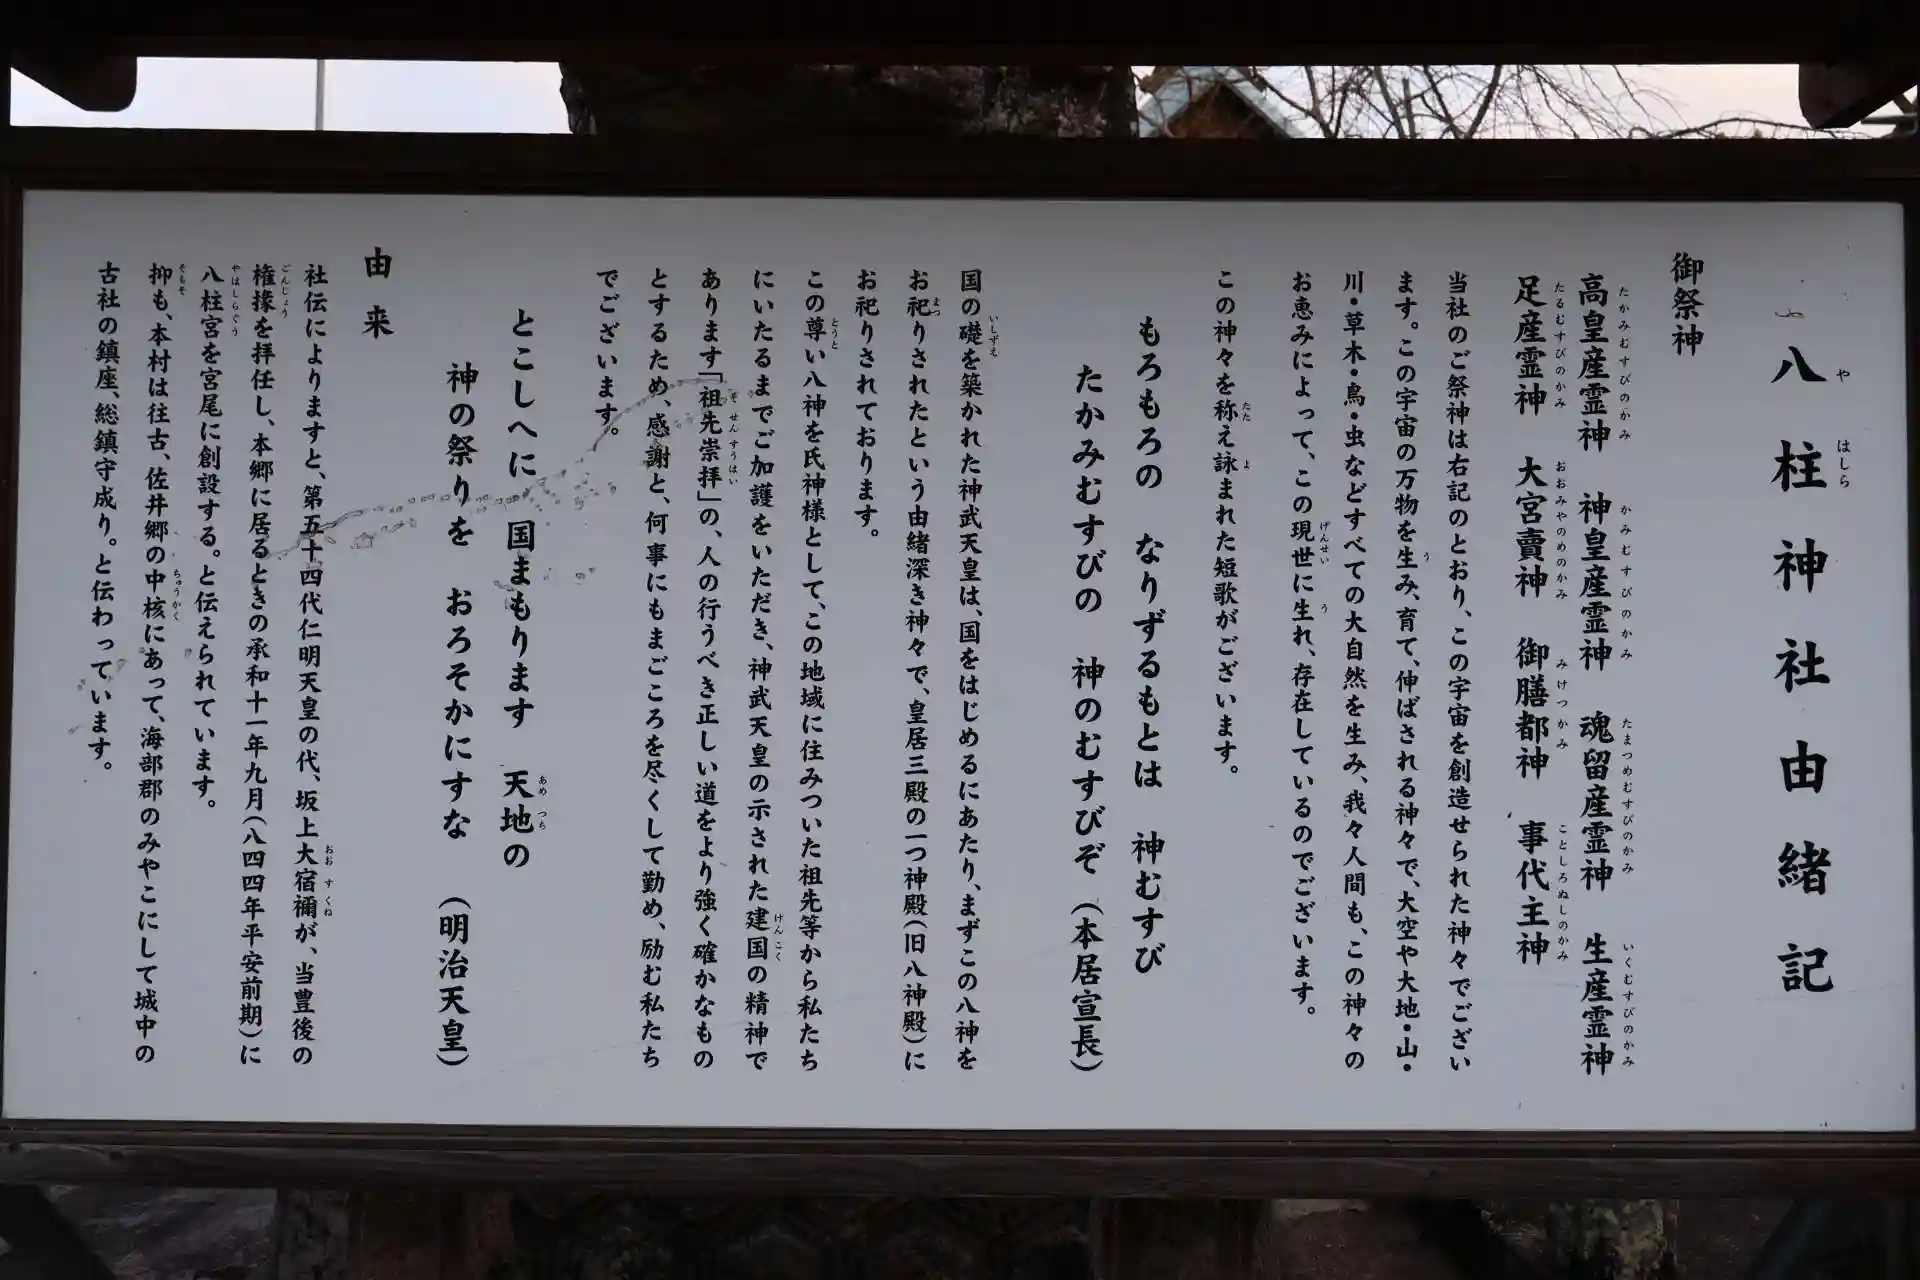 八柱神社由緒記
御祭神
高皇産霊神 神皇産霊神 魂留産霊神 生産霊神
足産霊神 大宮賣神 御膳都神 事代主神
当社のご祭神は右記のとおり、この宇宙を創造せられた神々でござい
ます。この宇宙の万物を生み、育て、伸ばされる神々で、大空や大地・山・
川・草木・鳥・虫などすべての大自然を生み、我々人間も、この神々の
お恵みによって、この現世に生れ、存在しているのでございます。
この神々を称え詠まれた短歌がございます。
もろもろの なりずるもとは 神むすび
たかみむすびの 神のむすびぞ (本居宣長)
国の礎を築かれた神武天皇は、国をはじめるにあたり、まずこの八神を
お祀りされたという由緒深き神々で、皇居三殿の一つ神殿(旧八神殿)に
お祀りされております。
この尊い八神を氏神様として、この地域に住みついた祖先等から私たち
にいたるまでご加護をいただき、神武天皇の示された建国の精神で
あります「祖先崇拝」の、人の行うべき正しい道をより強く確かなもの
とするため、感謝と、何事にもまごころを尽くして勤め、励む私たち
でございます。
とこしへに 国まもります 天地の
神の祭りを おろそかにすな (明治天皇)
由来
社伝によりますと、第五十四代仁明天皇の代、坂上大宿禰が、当豊後の
権掾を拝任し、本郷に居るときの承和十一年九月(八四四年平安前期)に
八柱宮を宮尾に創設する。と伝えられています。
抑も、本村は往古、佐井郷の中核にあって、海部郡のみやこにして城中の
古社の鎮座、総鎮守成り。と伝わっています。